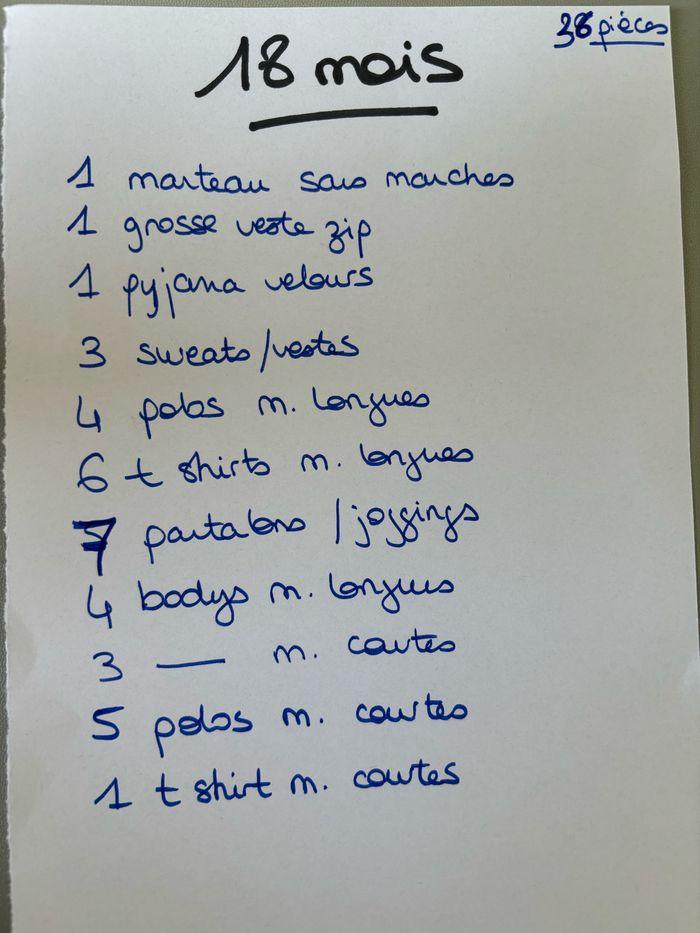 36 pièces
18 mois
1 manteau sans manches
1 grosse veste zip
1 pyjama velours
3 sweats/vestes
4 polos m. longues
6 t shirts m. longues
7 pantalons / joggings
4 bodys m. longues
3 — m. courtes
5 polos m. courtes
1 t shirt m. courtes